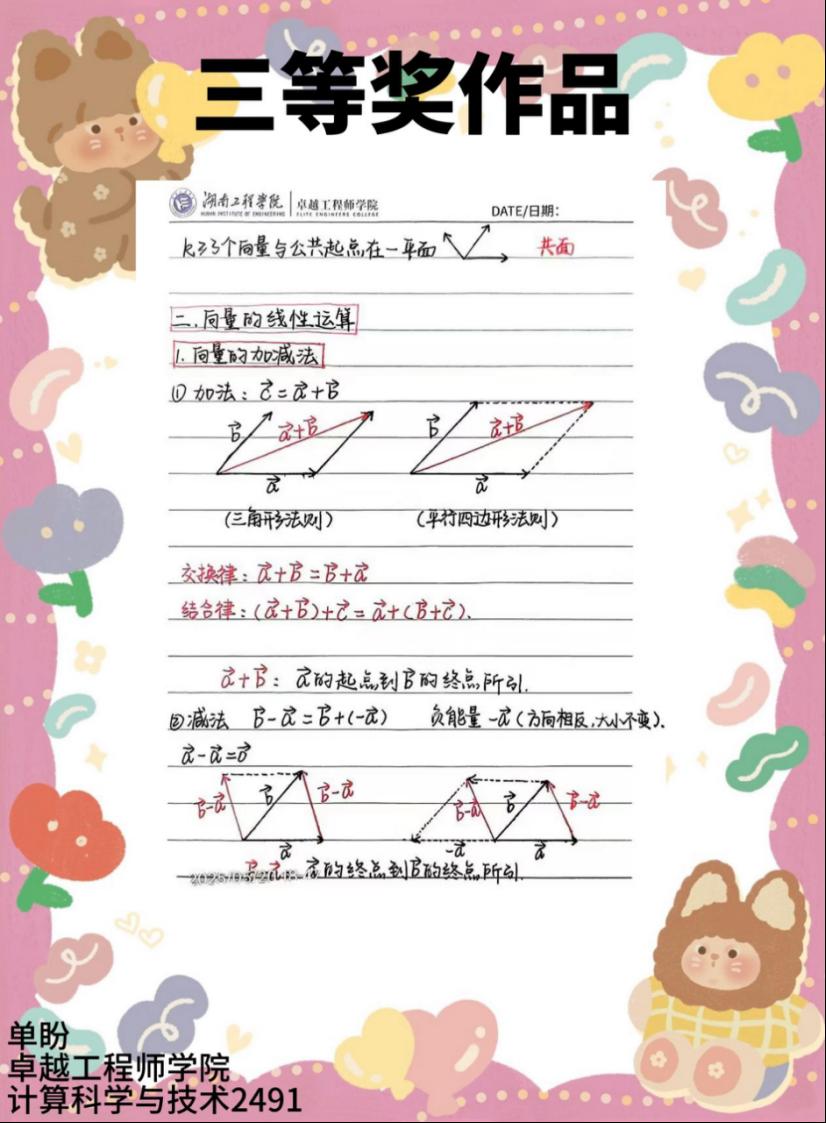 三等奖作品
湖南工程学院 卓越工程师学院
HUNAN INSTITUTE OF ENGINEERING ELITE ENGINEERS COLLEGE
DATE/日期:
k≥3个向量与公共起点在一平面 共面
二.向量的线性运算
1.向量的加减法
① 加法: c⃗=a⃗+b⃗
b⃗ a⃗+b⃗ a⃗ b⃗ a⃗+b⃗ a⃗
(三角形法则) (平行四边形法则)
交换律: a⃗+b⃗=b⃗+a⃗
结合律: (a⃗+b⃗)+c⃗=a⃗+(b⃗+c⃗).
a⃗+b⃗: a⃗的起点到b⃗的终点所引.
②减法 b⃗-a⃗=b⃗+(-a⃗) 负能量 -a⃗(方向相反,大小不变).
a⃗-a⃗=0⃗
b⃗-a⃗ b⃗ b⃗-a⃗ a⃗ b⃗-a⃗ b⃗ b⃗-a⃗ -a⃗ a⃗
a⃗的终点到b⃗的终点所引.
单盼
卓越工程师学院
计算科学与技术2491